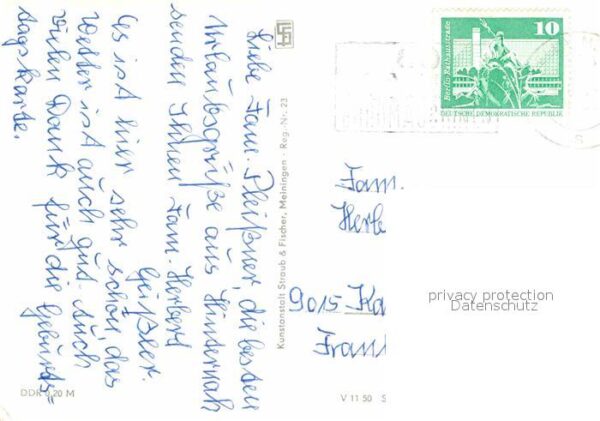 Liebe Fam. Pleißner, die besten
Urlaubsgrüße aus Hinternah
senden Ihnen Fam. Herbert
Geißler.
Es ist hier sehr schön, das
Wetter ist auch gut. Auch
vielen Dank für die Geburts=
tagskarte.
DDR 0,20 M
Kunstanstalt Straub & Fischer, Meiningen - Reg.-Nr. 23
V 11 50 S
10
Berlin · Rathausstraße
DEUTSCHE DEMOKRATISCHE REPUBLIK
Fam.
Herbe
9015-Ka
Frank
privacy protection
Datenschutz